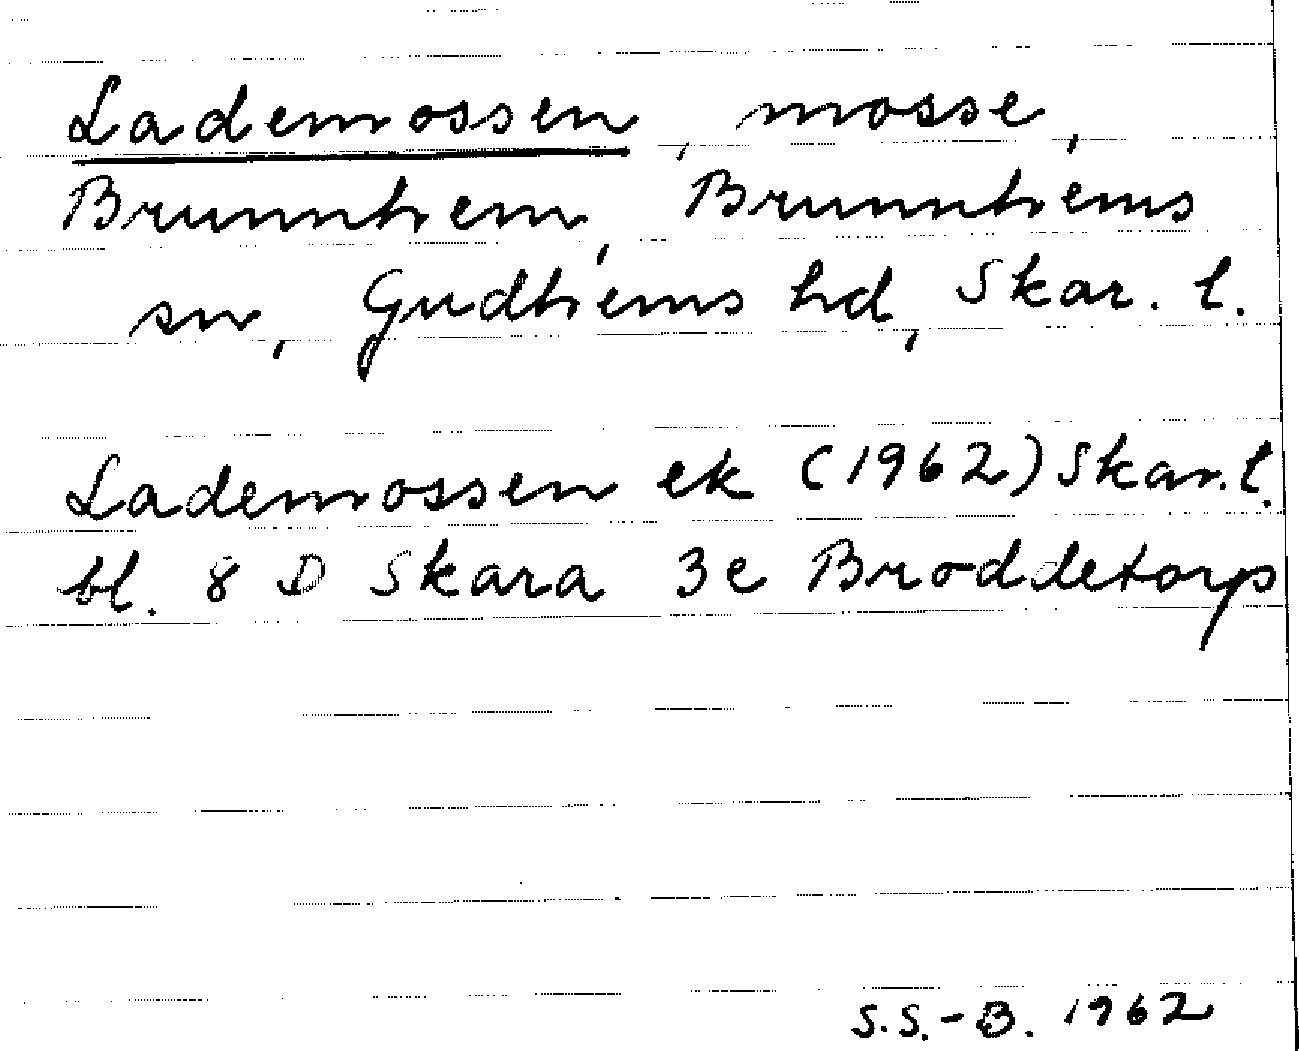 Lademossen, mosse,
Brunnhem, Brunnhems
sn, Gudhems hd, Skar. l.
Lademossen ek (1962) Skar. l.
bl. 8 D Skara 3e Broddetorp
S.S.-B. 1962